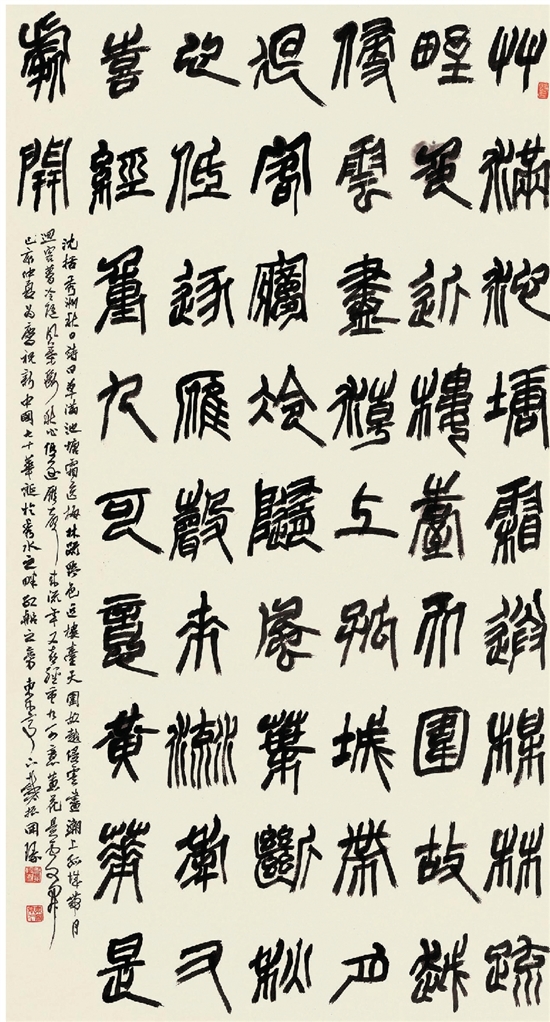 艸滿池塘霜送梅林疏
野色近樓臺天圍故越
侵雲盡潮上孤城帶月
迴客夢冷隨風葉斷秋
心低逐雁聲來流年又
喜經重九可意黃華是
處開
沈括秀洲秋日詩曰草滿池塘霜送梅林疏野色近樓臺天圍故越侵雲盡潮上孤城帶月
迴客夢冷隨風葉斷秋心低逐雁聲來流年又喜經重九可意黃花是處
己亥仲夏為慶祝新中國七十華誕於秀水之畔紅船之旁